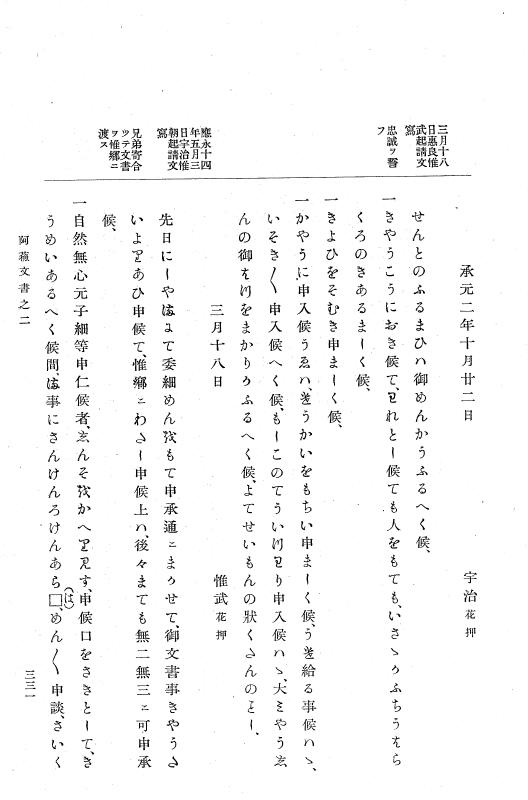 三月十八
日惠良惟
武起請文
寫
忠誠ヲ誓
フ
應永十四
年五月三
日宇治惟
朝起請文
寫
兄弟寄合
ツテ文書
ヲ惟郷ニ
渡ス
承元二年十月廿二日　宇治花押
せんとのふるまひハ御めんかうふるへく候、
一きやうこうにおき候て、われとし候ても人をもても、いさゝかふちうすら
くろのきあるましく候、
一きよひをそむき申ましく候、
一かやうに申入候うゑハ、きうかいをもちい申ましく候、うき給る事候ハゝ、
いそき〱申入候へく候、もしこのてうい川わり申入候ハゝ、大ミやうゑ
んの御き川をまかりかうふるへく候、よてせいもんの狀くさんのことし、
三月十八日　惟武花押
先日にしやはよて委細めんをもて申承通ニまかせて、御文書事きやうた
いよりあひ申候て、惟郷ニわたし申候上ハ、後々まても無二無三ニ可申承
候、
一自然無心元子細等申仁候者、志んそをかへりみす、申候口をさきとして、き
うめいあるへく候間、は事にさんけんろけんあら□(は)、めん〱申談、さいく
阿蘇文書之二
三三一